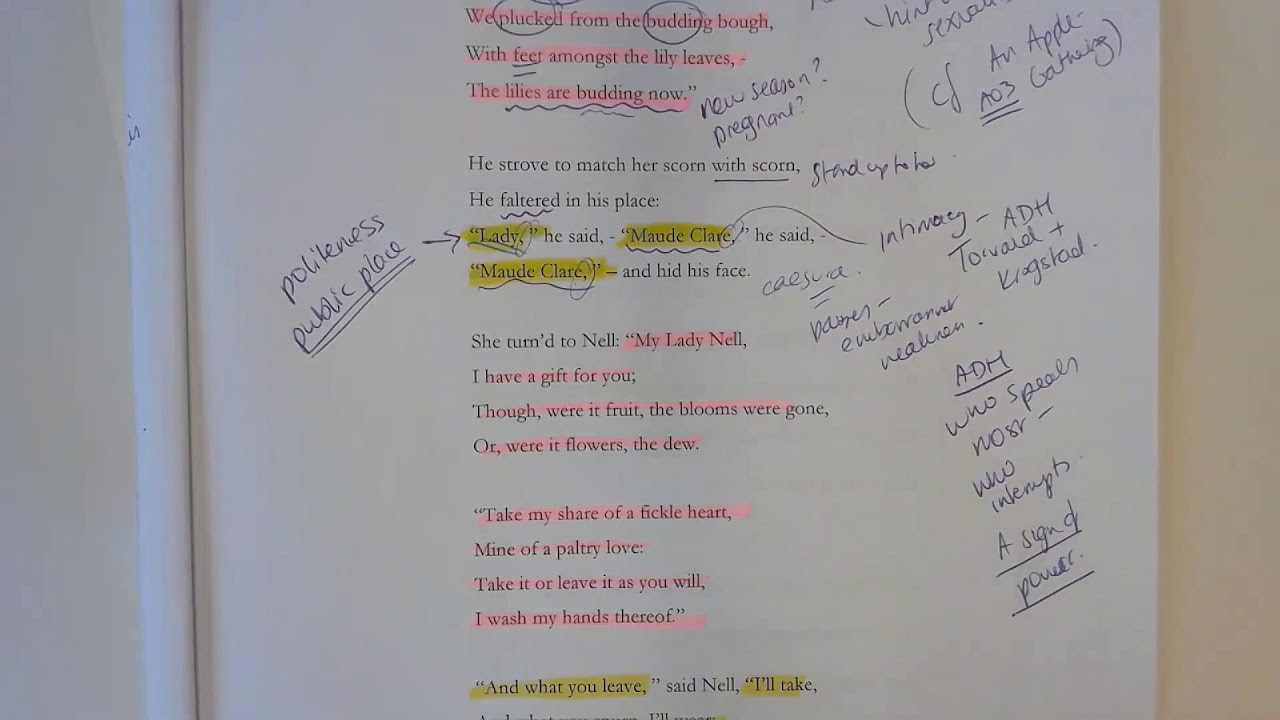 We plucked from the budding bough,
With feet amongst the lily leaves, -
The lilies are budding now."
new season?
pregnant?
hint
(cf An Apple-
Gathering)
AO3
He strove to match her scorn with scorn,
stand up to her
He faltered in his place:
"Lady," he said, - "Maude Clare," he said, -
"Maude Clare," – and hid his face.
politeness
public place
intimacy - ADH
Torvald +
Krogstad.
caesura.
pauses -
embarrassment
weakness.
She turn'd to Nell: "My Lady Nell,
I have a gift for you;
Though, were it fruit, the blooms were gone,
Or, were it flowers, the dew.
ADH
who speaks
most -
who
interrupts.
A sign of
power.
"Take my share of a fickle heart,
Mine of a paltry love:
Take it or leave it as you will,
I wash my hands thereof."
"And what you leave, " said Nell, "I'll take,